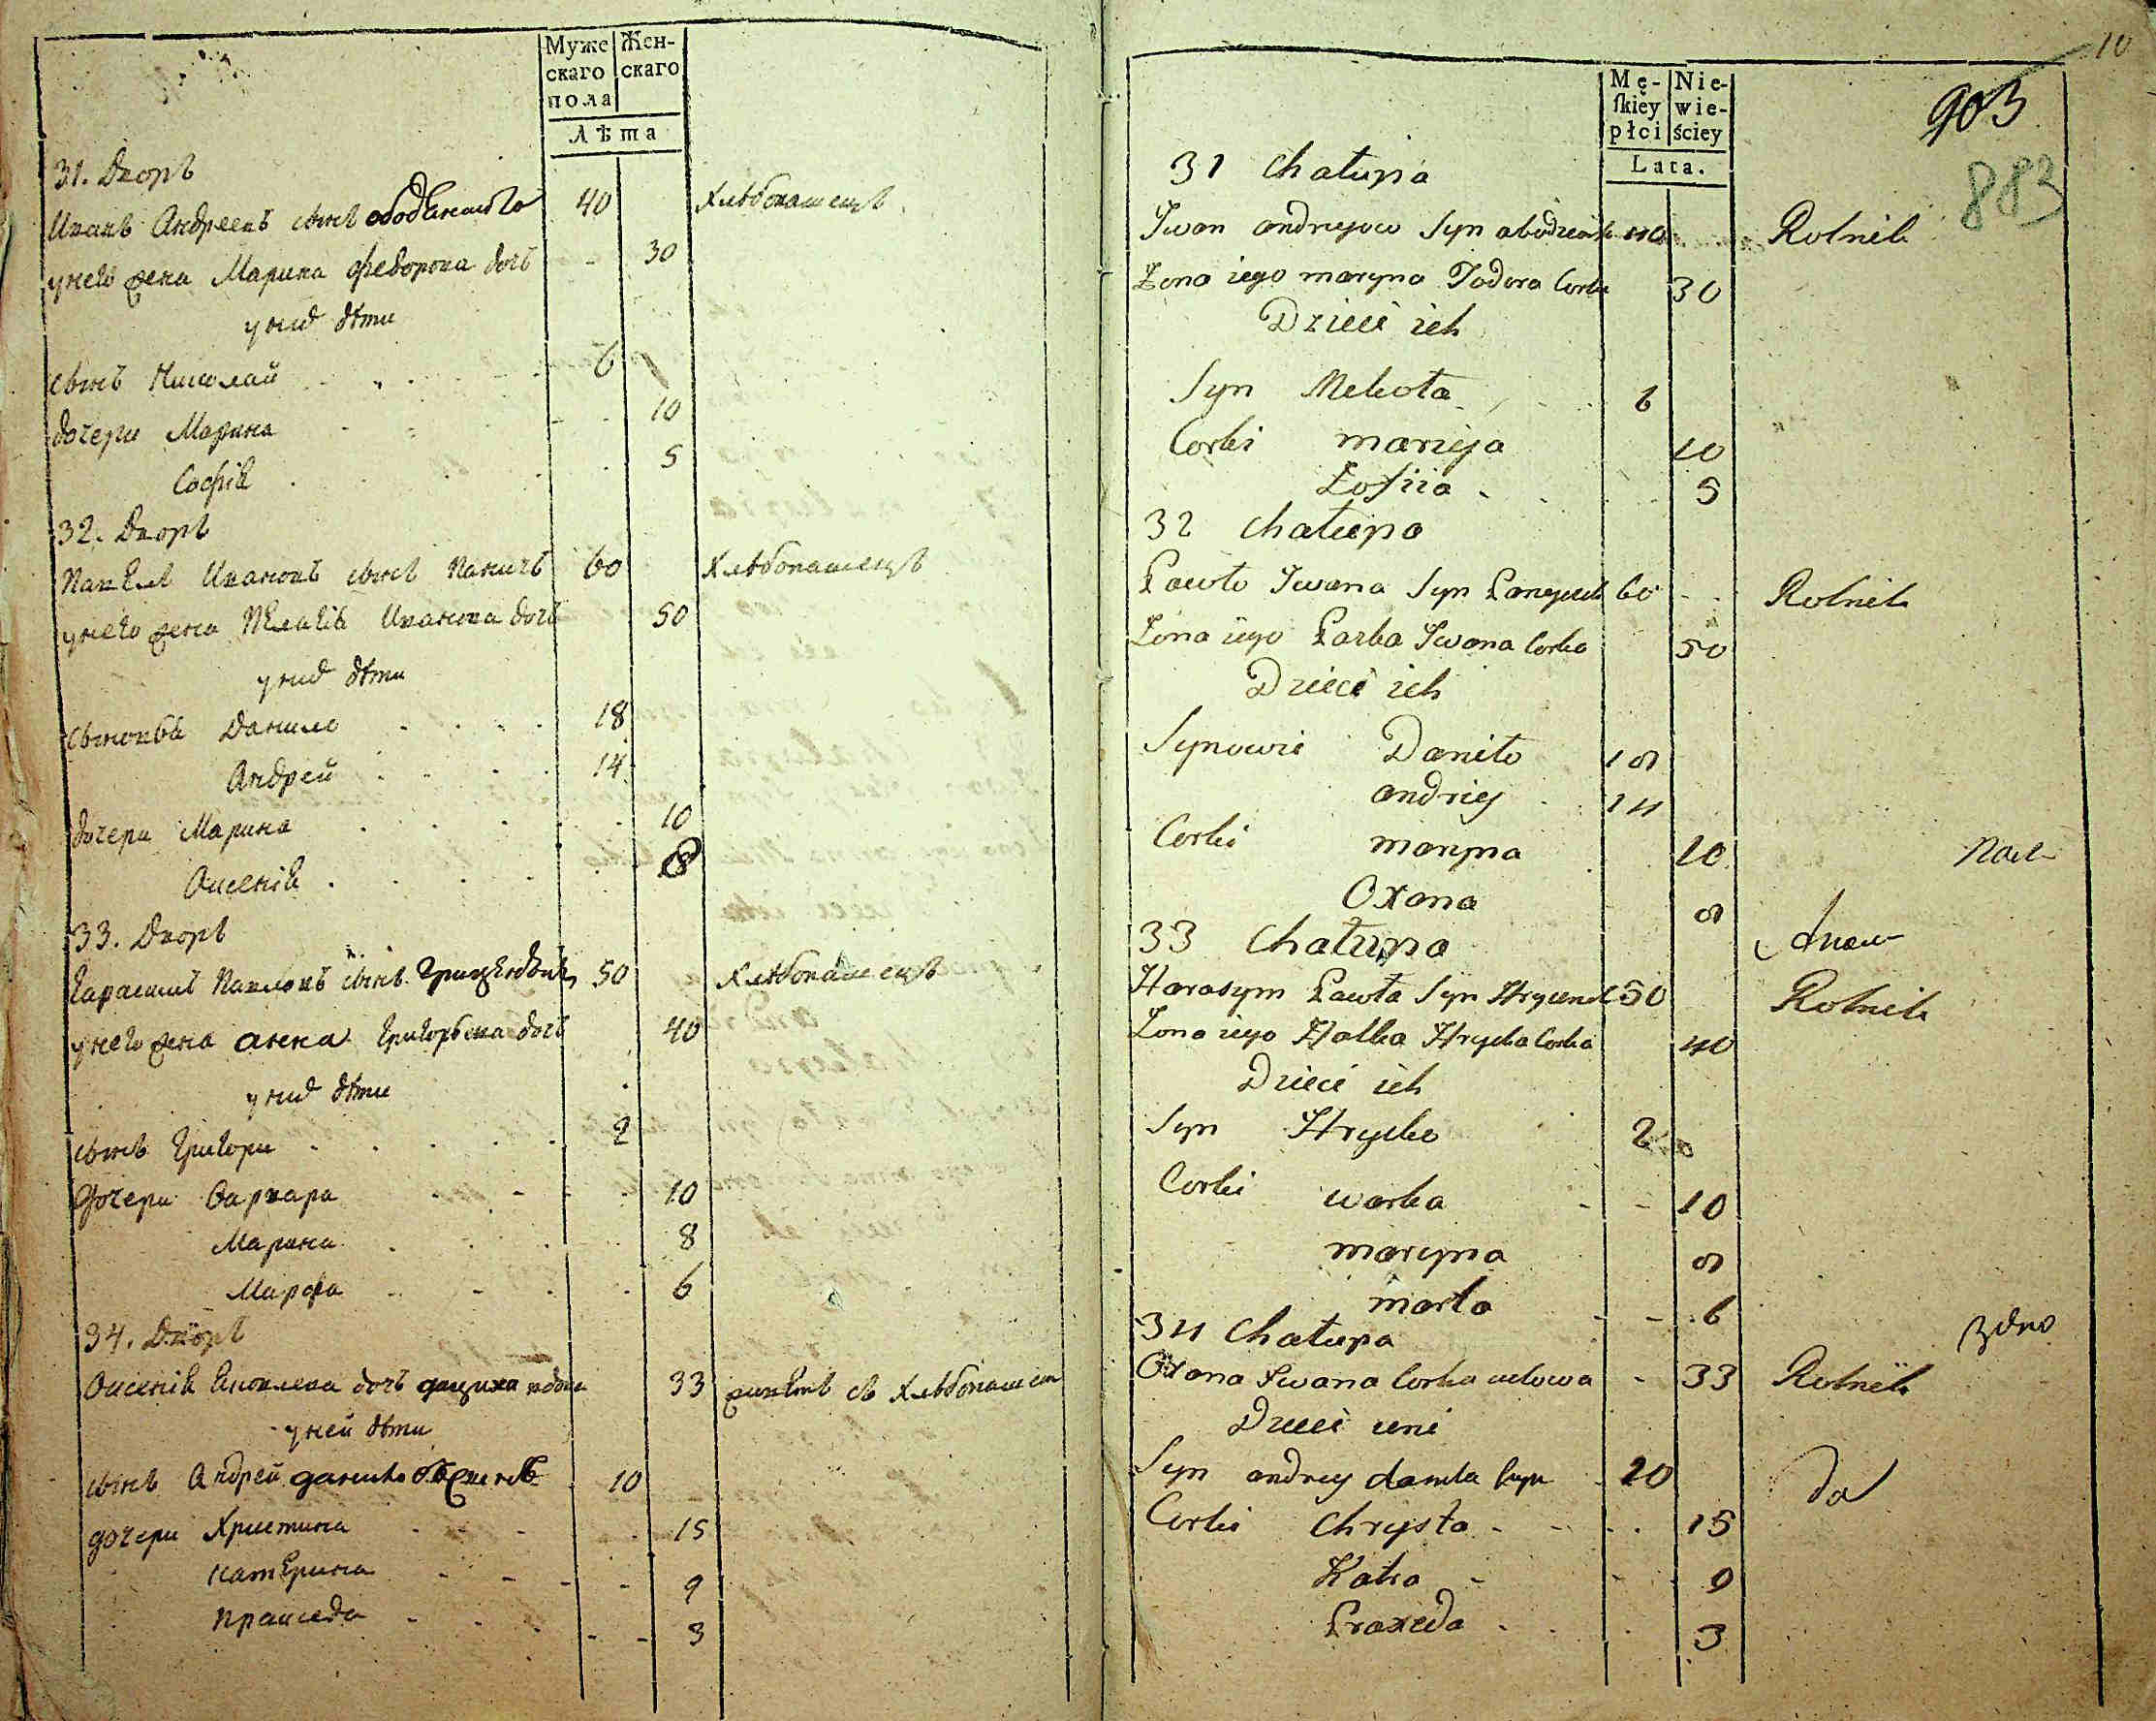 Муже Жен-
скаго скаго
пола
Лѣта
31. Дворъ
Иванъ Андреевъ сынъ 40 Хлѣбопашецъ
унего жена Марина Федорова дочь 30
уних дѣти
сынъ Николай 6
дочери Марина 10
Софія 5
32. Дворъ
Павелъ Ивановъ сынъ Паничъ 60 Хлѣбопашецъ
унего жена Пелагія Иванова дочь 50
уних дѣти
сыновья Данило 18
Андрей 14
дочери Марина 10
Оксенія 8
33. Дворъ
Гарасимъ Павловъ сынъ 50 Хлѣбопашецъ
унего жена анна Григорьева дочь 40
уних дѣти
сынъ Григори 2
дочери Варвара 10
Марина 8
Марфа 6
34. Дворъ
Оксенія дочь 33 съ Хлѣбопашец
уней дѣти
сынъ Андрей 10
дочери Христина 15
катерина 9
пракседа 3
10
Mę- Nie-
skiey wie-
płci ściey
Lata.
903
883
31 Chałupa
Iwan andryiow Syn 40 Rolnik
Żona iego maryna Fodora Corka 30
Dzieci ich
Syn Mekoła 6
Corki marieja 10
Zofiia 5
32 chałupa
Pawło Iwana Syn 60 Rolnik
Żona iego Parka Iwana Corka 50
Dzieci ich
Synowie Daniło 18
andriey 14
Corki maryna 10
Oxana 8
33 Chałupa
Harasym Pawła Syn 50 Rolnik
Żona iego Halka Hrycka Corka 40
Dzieci ich
Syn Hrycko 2
Corki warka 10
maryna 8
marta 6
34 Chałupa
Oxana Iwana Corka wdowa 33 Rolnik
Dzieci
Syn andrey daniła Syn 10
Corki Chrysta 15
Katra 9
Praxeda 3